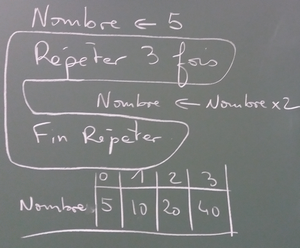 Nombre ← 5
Répéter 3 fois
Nombre ← Nombre x2
Fin Répéter
0 1 2 3
Nombre 5 10 20 40